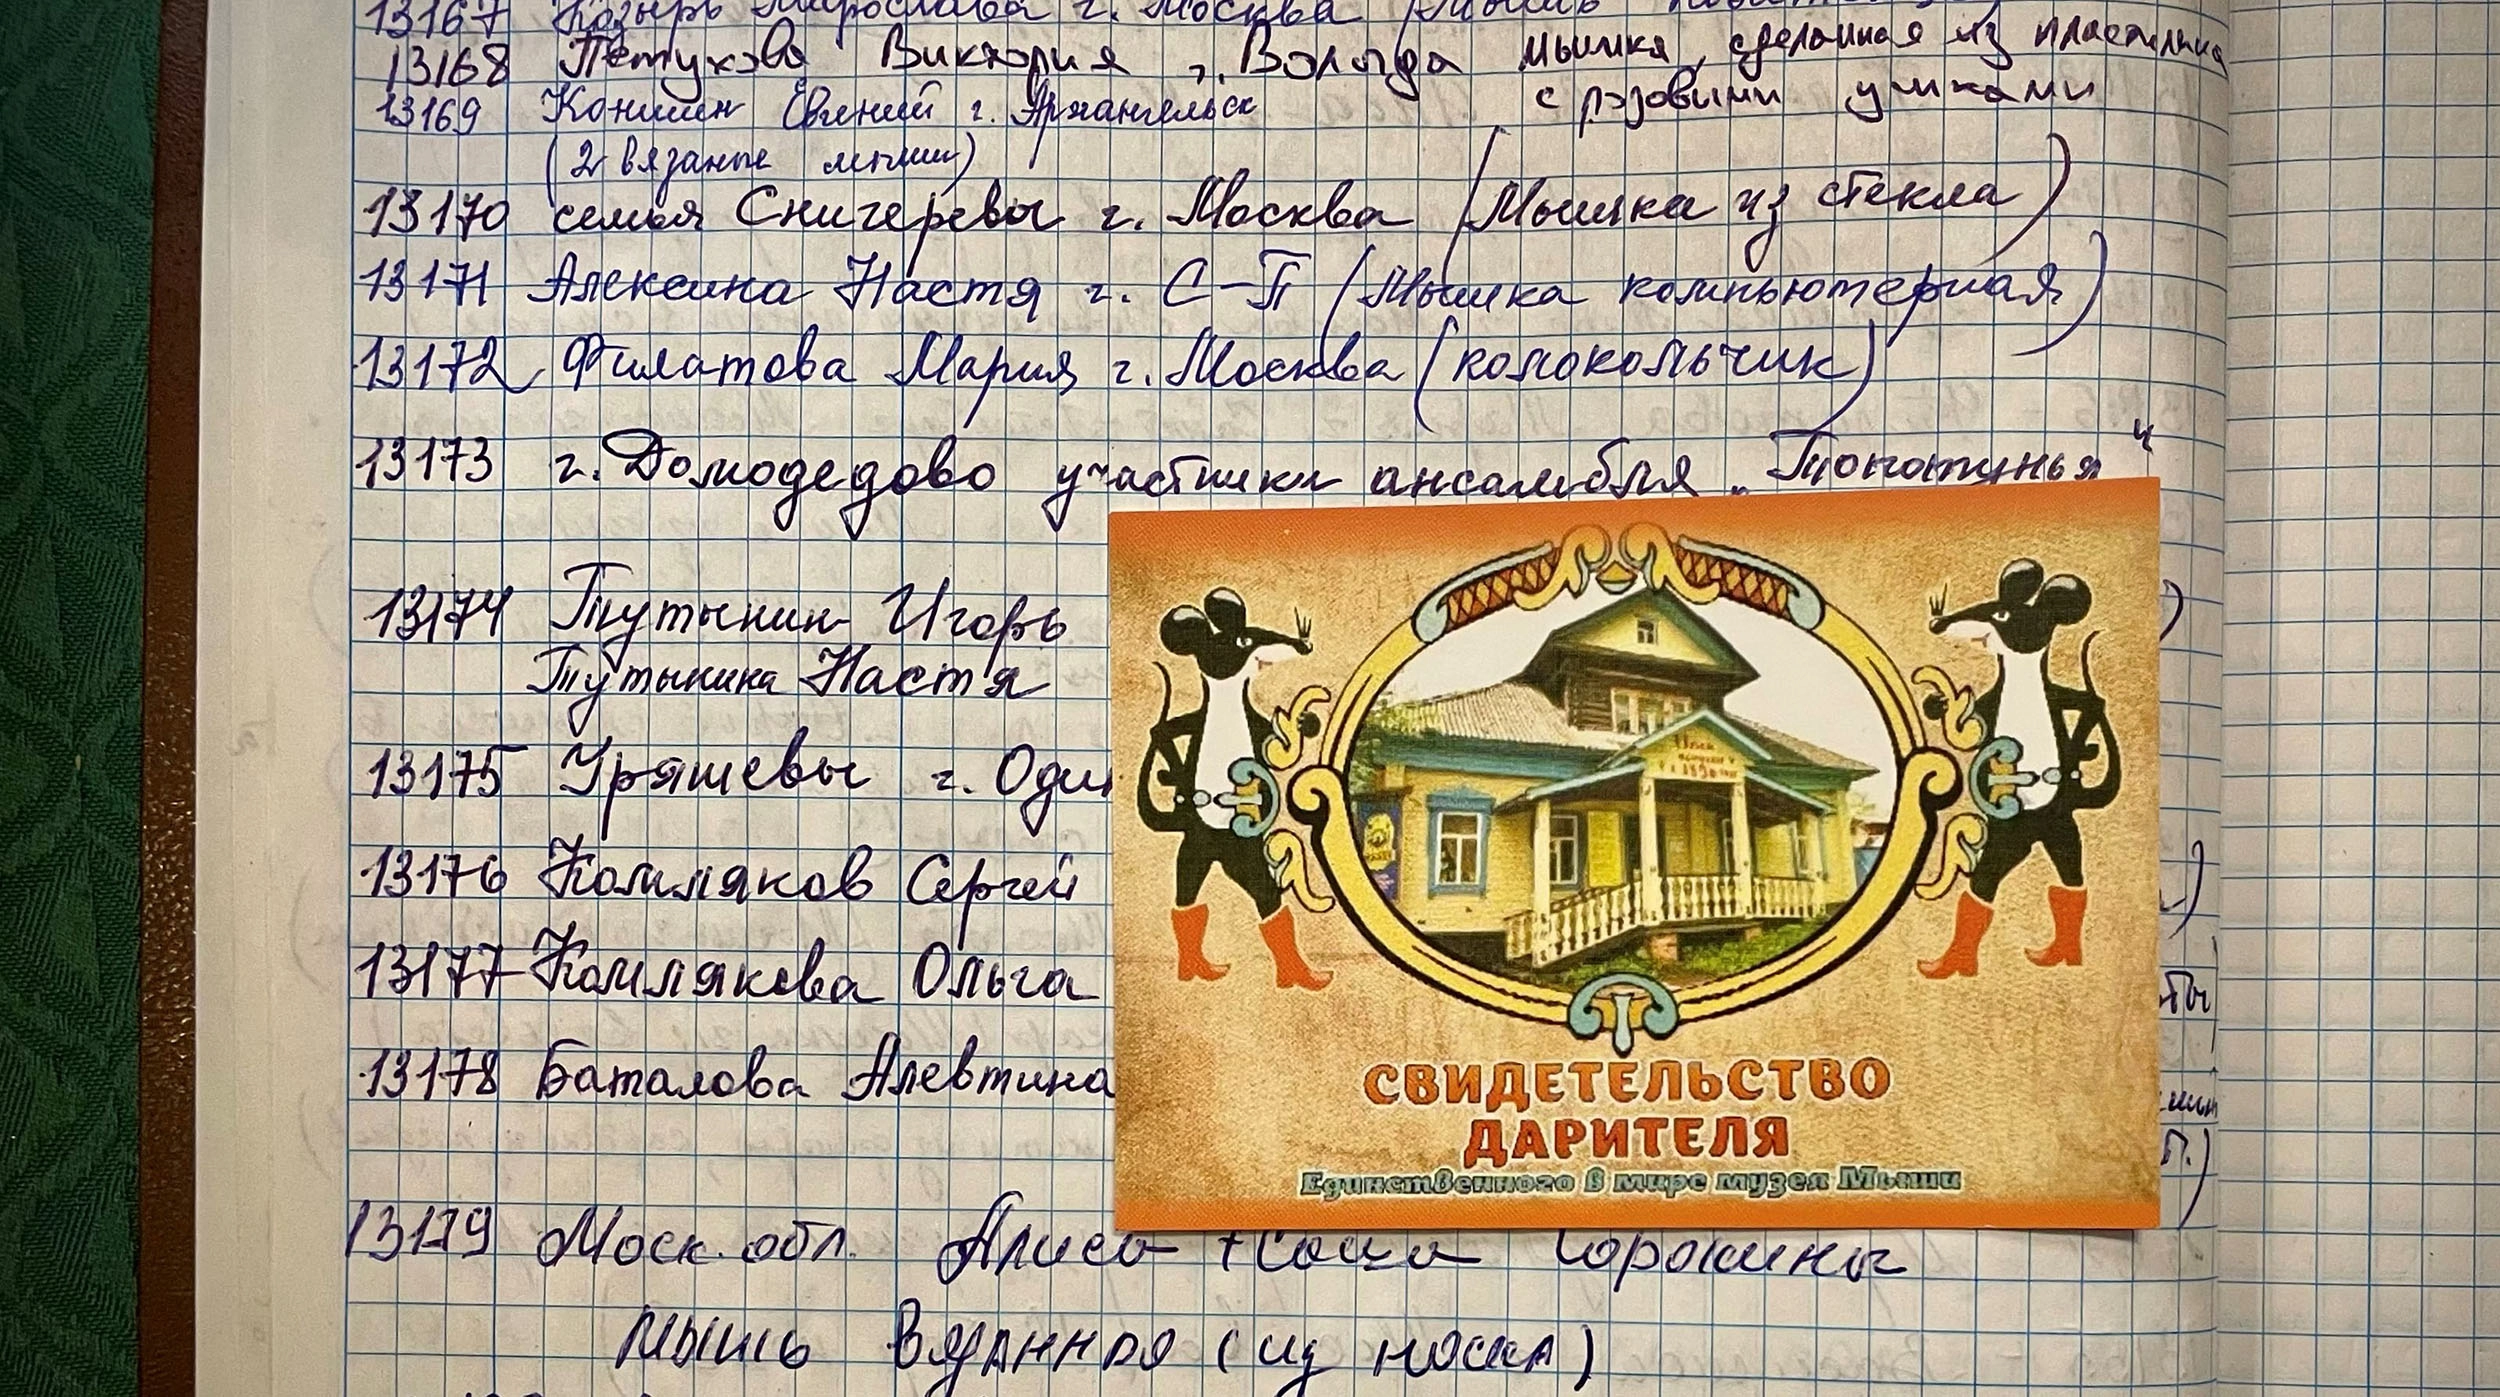 13167 Козырь Мирослава г. Москва (Мышь
13168 Петухова Виктория г. Вологда мышка, сделанная из пластилина
с розовыми ушками
13169 Коншин Евгений г. Архангельск
(2 вязаные мыши)
13170 семья Снигеревы г. Москва (Мышка из стекла)
13171 Алексина Настя г. С-П (Мышка компьютерная)
13172 Филатова Мария г. Москва (колокольчик)
13173 г. Домодедово участники ансамбля „Топотунья"
13174 Тутынин Игорь
Тутынина Настя
13175 Уряшевы г. Один
13176 Комляков Сергей
13177 Комлякова Ольга
13178 Баталова Алевтина
СВИДЕТЕЛЬСТВО
ДАРИТЕЛЯ
Единственного в мире музея Мыши
13179 Моск. обл. Алиса + Саша Сорокины
мышь вязанная (из носка)